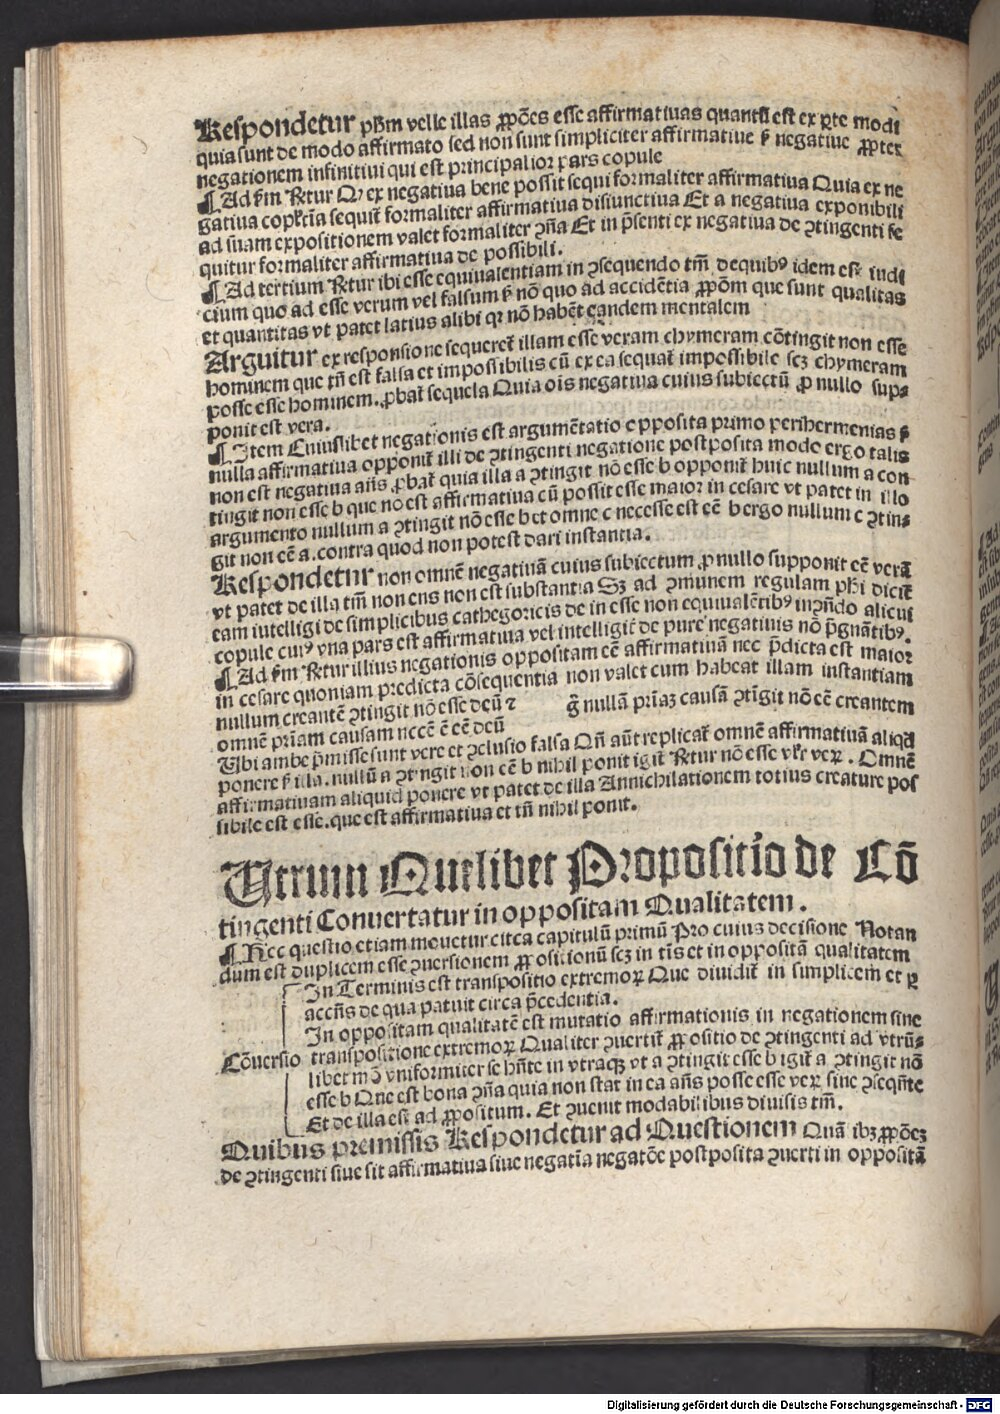 Respondetur phm velle illas ꝓpōes esse affirmatiuas quantū est ex ꝑte modi
quia sunt de modo affirmato sed non sunt simpliciter affirmatiue sꝫ negatiue ꝓpter
negationem infinitiui qui est principalior pars copule
¶ Ad sm̄ Rr̄tur Qꝫ ex negatiua bene possit sequi formaliter affirmatiua Quia ex ne
gatiua coplt̄ia sequit̄ formaliter affirmatiua disiunctiua Et a negatiua exponibili
ad suam expositionem valet formaliter ꝯn̄a Et in p̄senti ex negatiua de ꝯtingenti se
quitur formaliter affirmatiua de possibili.
¶ Ad tertium Rr̄tur ibi esse equiualentiam in ꝯsequendo tm̄ de quibꝰ idem est iudi
cium quo ad esse verum vel falsum sꝫ nō quo ad accidētia ꝓpōm que sunt qualitas
et quantitas vt patet latius alibi qꝛ nō habēt eandem mentalem
Arguitur ex responsione sequeret̄ illam esse veram chymeram cōtingit non esse
hominem que tn̄ est falsa et impossibilis cū ex ea sequat̄ impossibile scꝫ chymeram
posse esse hominem. ꝓbat̄ sequela Quia ois negatiua cuius subiectū ꝓ nullo sup⸗
ponit est vera.
¶ Item Cuiuslibet negationis est argumētatio opposita primo perihermenias sꝫ
nulla affirmatiua opponit̄ illi de ꝯtingenti negatione postposita modo ergo talis
non est negatiua an̄s ꝓbat̄ quia illa a ꝯtingit nō esse b opponit̄ huic nullum a con
tingit non esse b que nō est affirmatiua cū possit esse maior in cesare vt patet in illo
argumento nullum a ꝯtingit nō esse b et omne c necesse est eē b ergo nullum c ꝯtin⸗
git non eē a. contra quod non potest dari instantia.
Respondetur non omnē negatiuā cuius subiectum ꝓ nullo supponit eē verā
vt patet de illa tm̄ non ens non est substantia Sꝫ ad ꝯmunem regulam phi dicit̄
eam intelligi de simplicibus cathegoricis de in esse non equiualētibꝰ in ꝯn̄do alicui
copule cuiꝰ vna pars est affirmatiua vel intelligit̄ de pure negatiuis nō p̄gnātibꝰ.
¶ Ad sm̄ Rr̄tur illius negationis oppositam eē affirmatiuā nec p̄dicta est maior
in cesare quoniam predicta cōsequentia non valet cum habeat illam instantiam
nullum creantē ꝯtingit nō esse deū ⁊
omnē prīam causam necē ē eē deū g̊ nullā prīaꝫ causā ꝯtīgit nō eē creantem
Ubi ambe p̄misse sunt vere et ꝯclusio falsa Qn̄ aūt replicat̄ omnē affirmatiuā aliqd̄
ponere sꝫ illa. nullū a ꝯtingit non eē b nihil ponit igit̄ Rr̄tur nō esse vlr̄ veꝝ. Omnē
affirmatiuam aliquid ponere vt patet de illa Annichilationem totius creature pos
sibile est esse. que est affirmatiua et tn̄ nihil ponit.
Utrum Quelibet Propositio de Cō
tingenti Conuertatur in oppositam Qualitatem.
¶ Hec questio etiam mouetur circa capitulū primū Pro cuius decisione Notan
dum est duplicem esse ꝯuersionem ꝓpositionū scꝫ in tīs et in oppositā qualitatem
In Terminis est transpositio extremoꝝ Que diuidit̄ in simplicem et ꝑ
accn̄s de qua patuit circa p̄cedentia.
In oppositam qualitatē est mutatio affirmationis in negationem sine
Cōuersio transpositione extremoꝝ Qualiter ꝯuertit̄ ꝓpositio de ꝯtingenti ad vtrū⸗
libet mō vniformiter se hn̄te in vtraqꝫ vt a ꝯtingit esse b igit̄ a ꝯtingit nō
esse b Que est bona ꝯn̄a quia non stat in ea an̄s posse esse veꝝ sine ꝯseqn̄te
Et de illa est ad ꝓpositum. Et ꝯuenit modalibus diuisis tm̄.
Quibus premissis Respondetur ad Questionem Quā ibꝫ ꝓpōeꝫ
de ꝯtingenti siue sit affirmatiua siue negatīa negatōe postposita ꝯuerti in oppositā
Digitalisierung gefördert durch die Deutsche Forschungsgemeinschaft - DFG